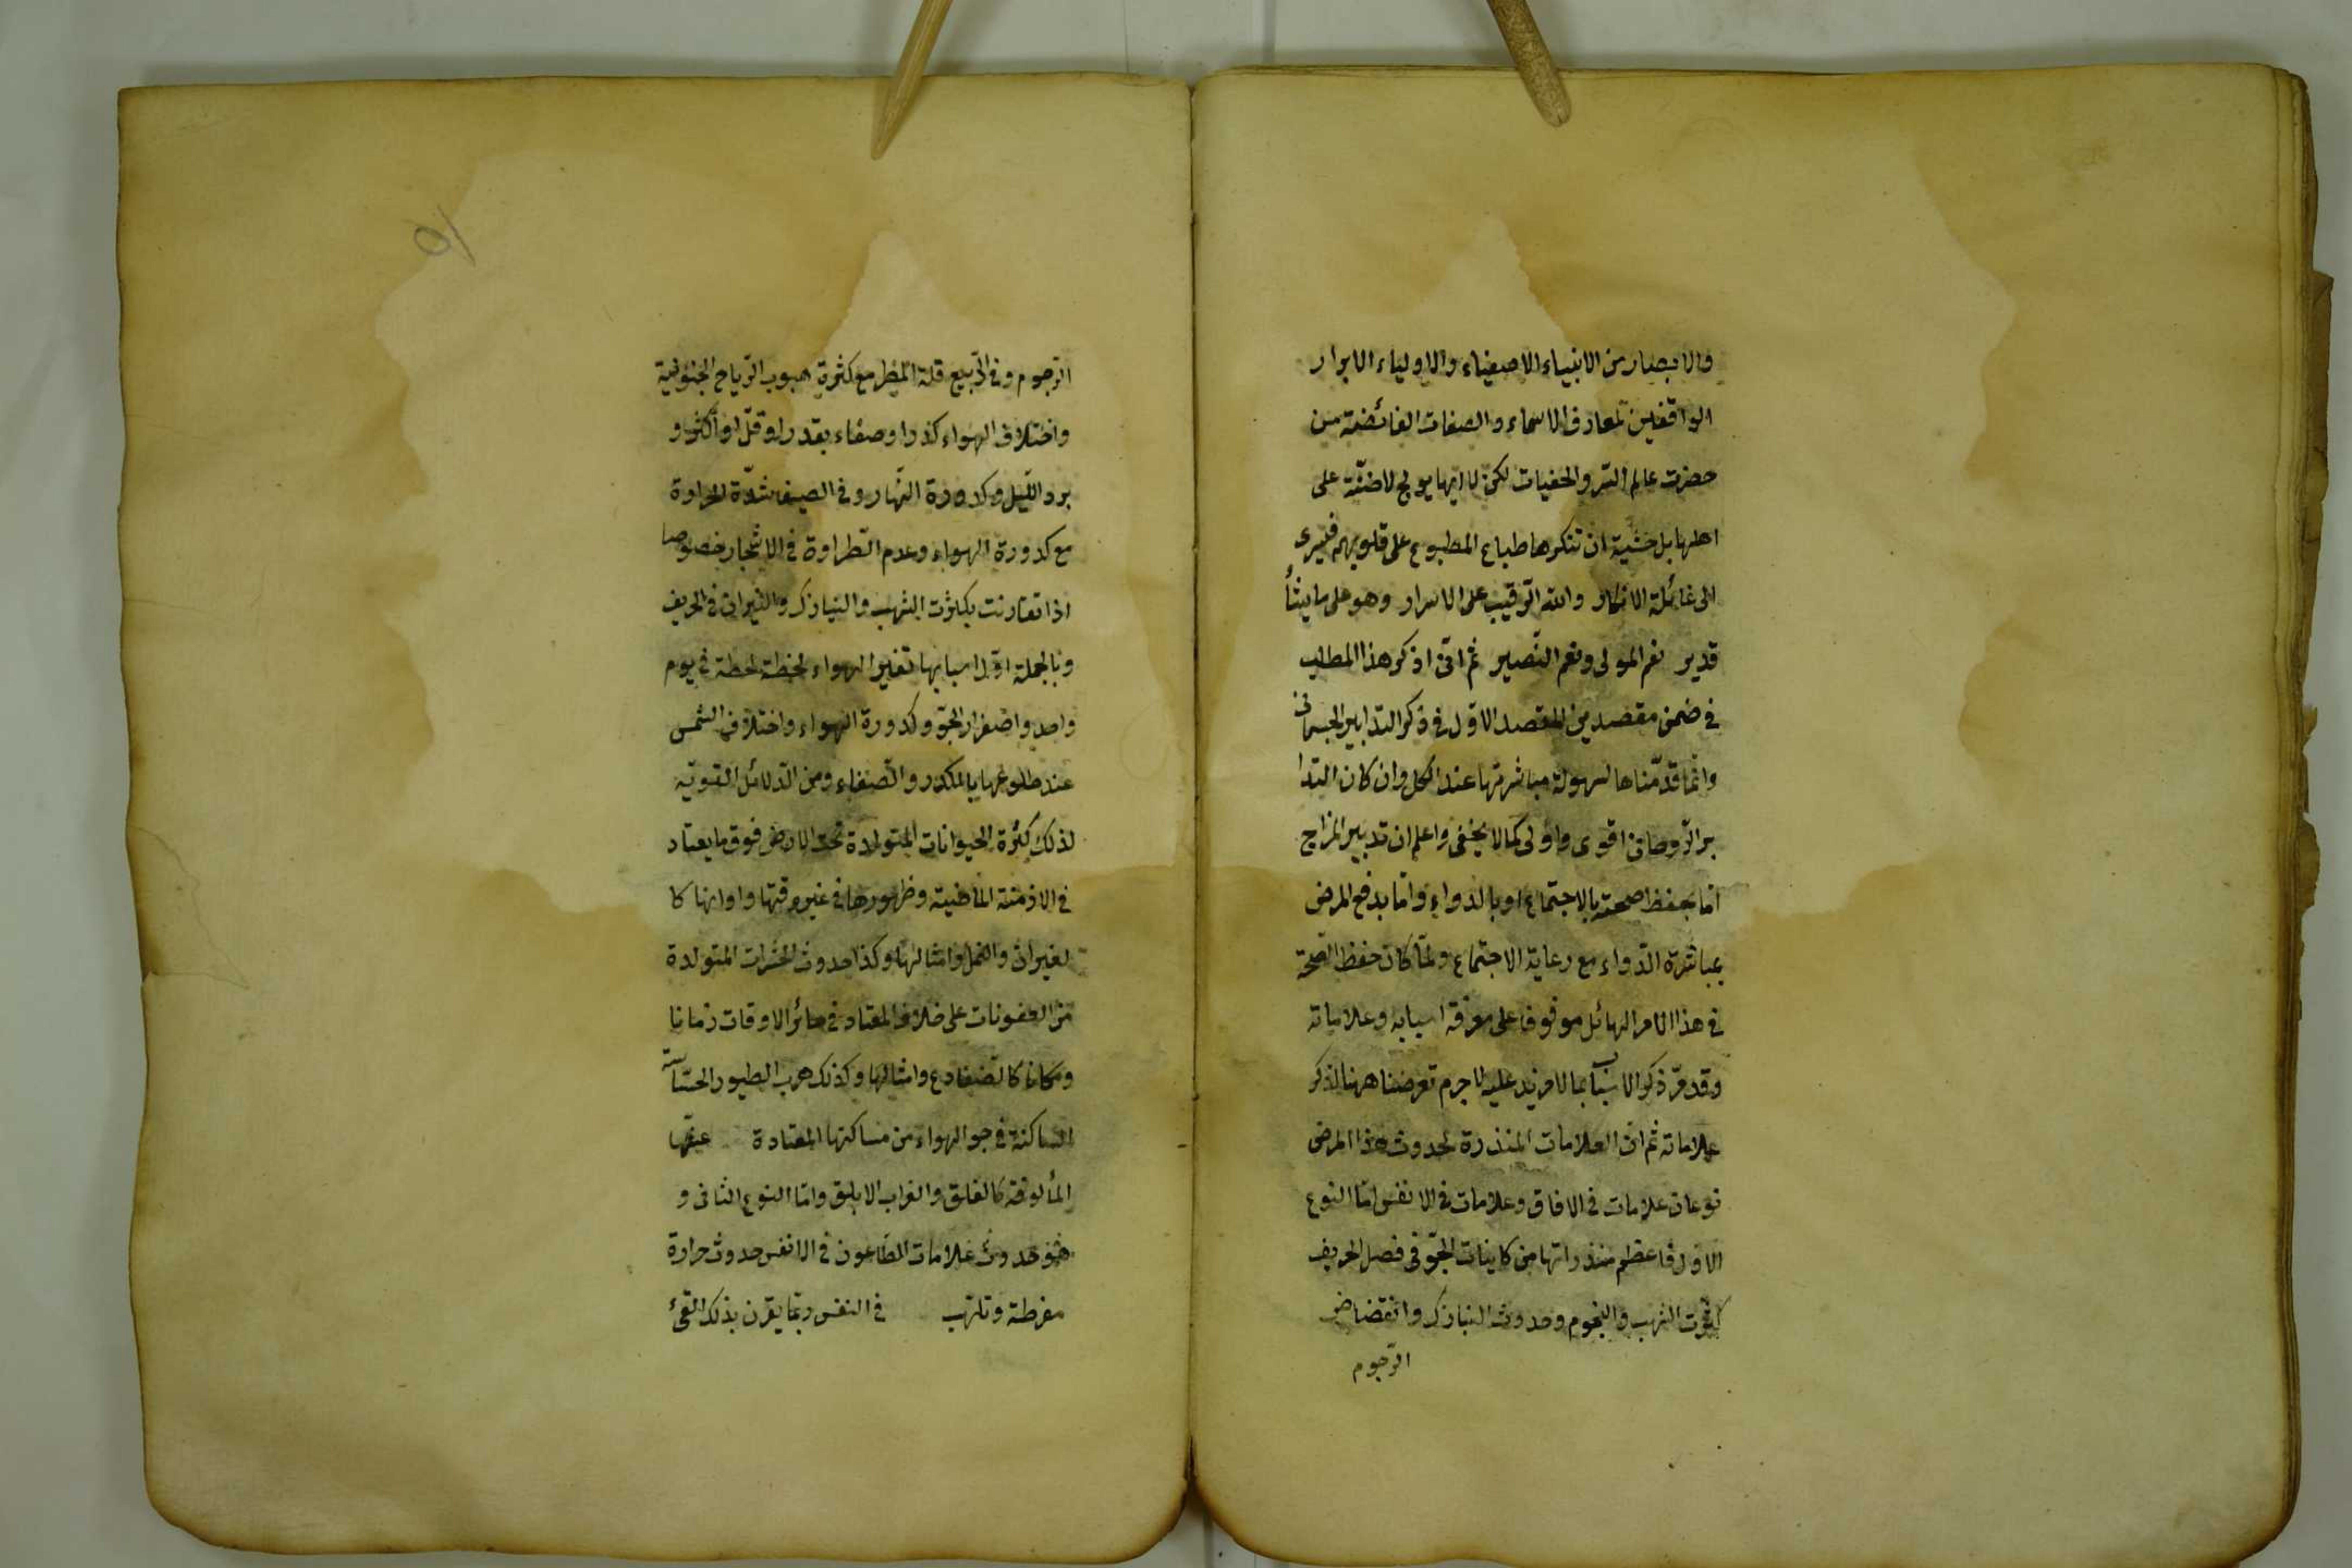 والابصار من الانبياء الاصفياء والاولياء الابرار
الواقفين بمعارف الاسماء والصفات الفائضة من
حضرت عالم السّر والخفيات لكن لا انها يولج لاضنّة على
اهلها بل خشية ان تنكرها طباع المطبوع على قلوبهم فيسرى
الى غائلة الانكار والله الرّقيب على الاسرار وهو على ما يشأ
قدير نعم المولى ونعم النّصير ثم انى اذكر هذا المطلب
فى ضمن مقصدين المقصد الاوّل فى ذكر التدابير الجسمانى
وانّما قدّمناها لسهولة مباشرتها عند الكل وان كان التدا
بير الرّوحانى اقوى واولى كما لا يخفى واعلم ان تدبير المزاج
امّا بحفظ صحته بالاجتماع او بالدواء وامّا بدفع المرض
بمباشرة الدّواء مع رعاية الاجتماع ولمّا كان حفظ الصّحة
فى هذا الامر الهائل موقوف على معرفة اسبابه وعلاماته
وقد مرّ ذكر الاسباب بما لامزيد عليه لاجرم تعرضنا ههنا لذكر
علاماته ثم انّ العلامات المنذرة لحدوث هذا المرض
نوعان علامات فى الافاق وعلامات فى الانفس امّا النوع
الاوّل فاعظم منذراتها من كاينات الجّو فى فصل الخريف
كثرت الشهب والنجوم وحدوث النيازك وانقضاض
الرّجوم
الرّجوم وفى الرّبيع قلة المطر مع كثرة هبوب الرّياح الجنوبية
واختلاف الهواء كذرا وصفاء بقدر او قلّ او اكثر و
برد اللّيل وكدورة النّهار وفى الصيف شدّة الحرارة
مع كدورة الهواء وعدم الطّراوة فى الاشجار خصوصا
اذا تقارنت بكثرت الشهب والنيازك والنيران فى الخريف
وبالجملة اوّل اسبابها تغير الهواء لحظة لحظة فى يوم
واحد واصفرار الجّو وكدورة الهواء واختلاف الشمس
عند طلوعها بالمكدر والصّفاء ومن الدّلائل القويّة
لذلك كثرة الحيوانات المتولدة تحت الارض فوق ما يعتاد
فى الازمنة الماضية وظهورها فى غير وقتها واوانها كا
لفيران والنمل وامثالها وكذا حدوث الحشرات المتولدة
من العفونات على خلاف المعتاد فى سائر الاوقات زمانا
ومكانا كالضفادع وامثالها وكذلك هرب الطيور الحسّاسة
الساكنة فى جو الهواء من مساكنها المعتادة
المألوفة كالقلق والغراب الابلق وامّا النوع الثانى و
هو حدوث علامات الطّاعون فى الانفس حدوث حرارة
مفرطة وتلهّب فى النفس وربّما يقرن بذلك القئ